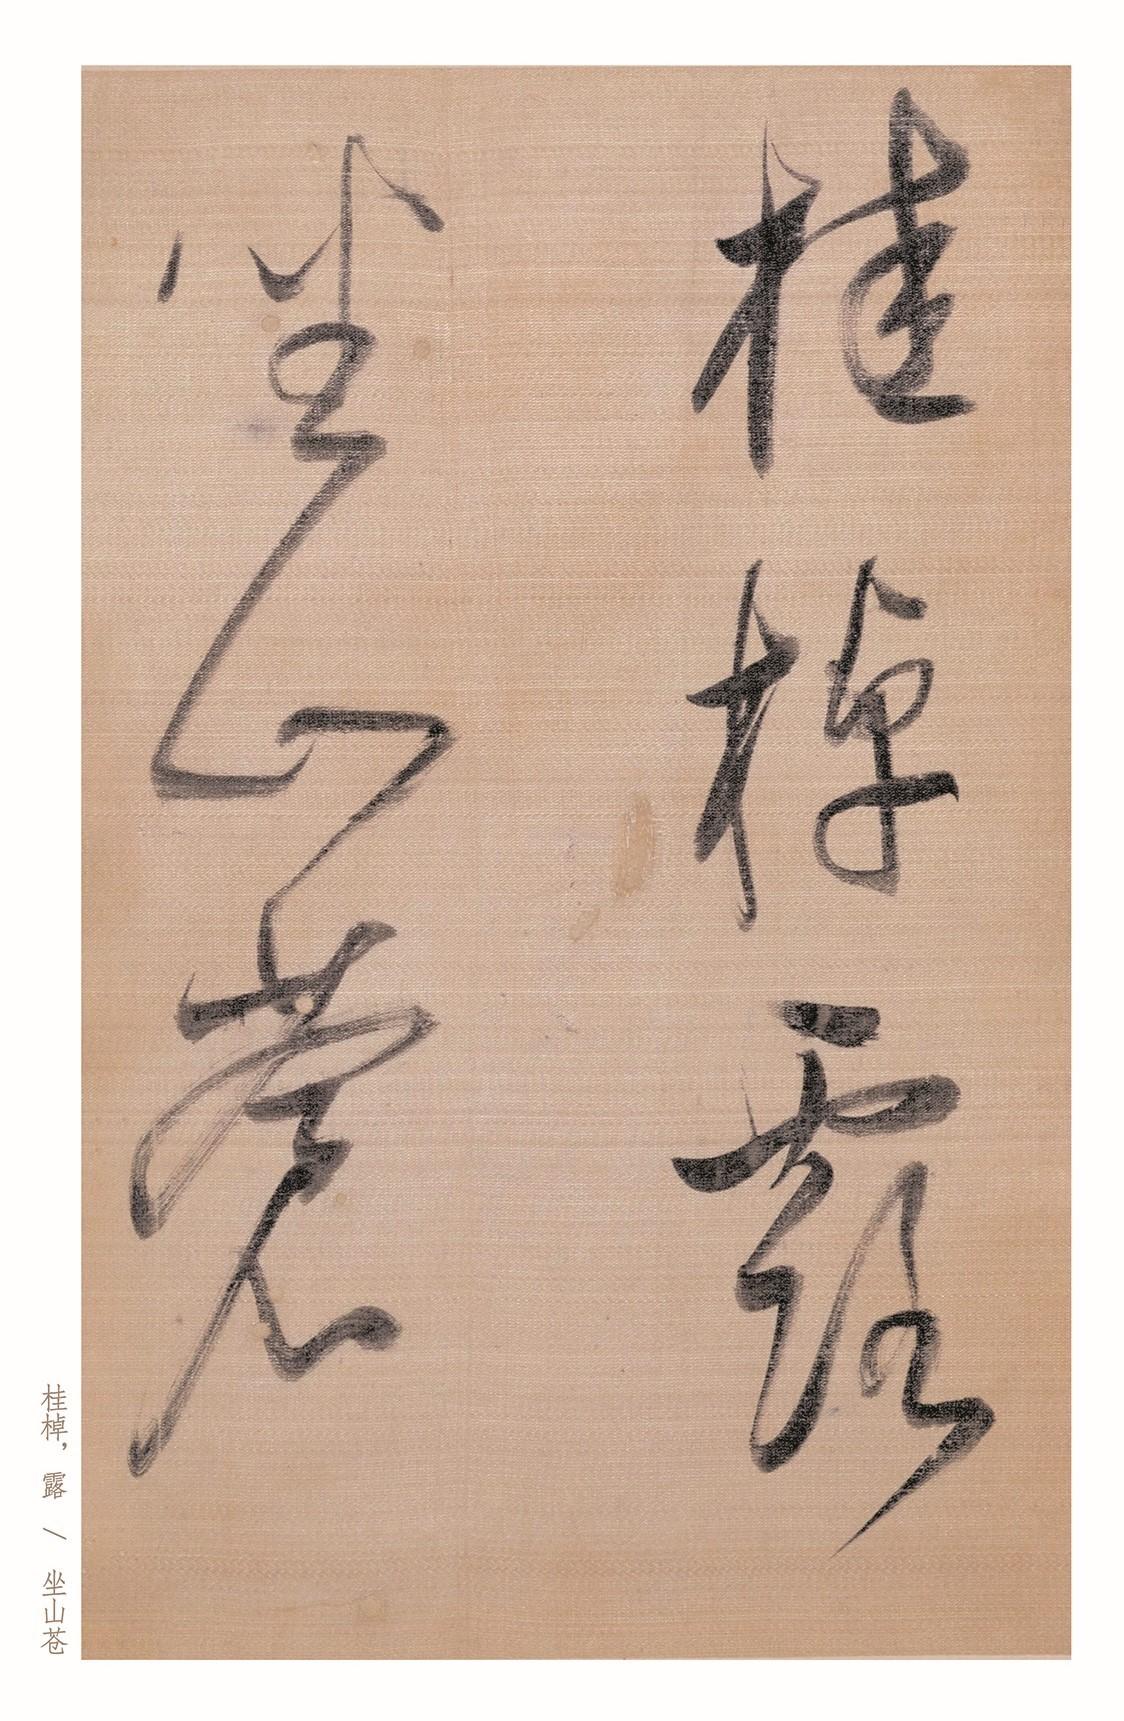 桂棹露
坐山蒼
桂棹，露 / 坐山苍